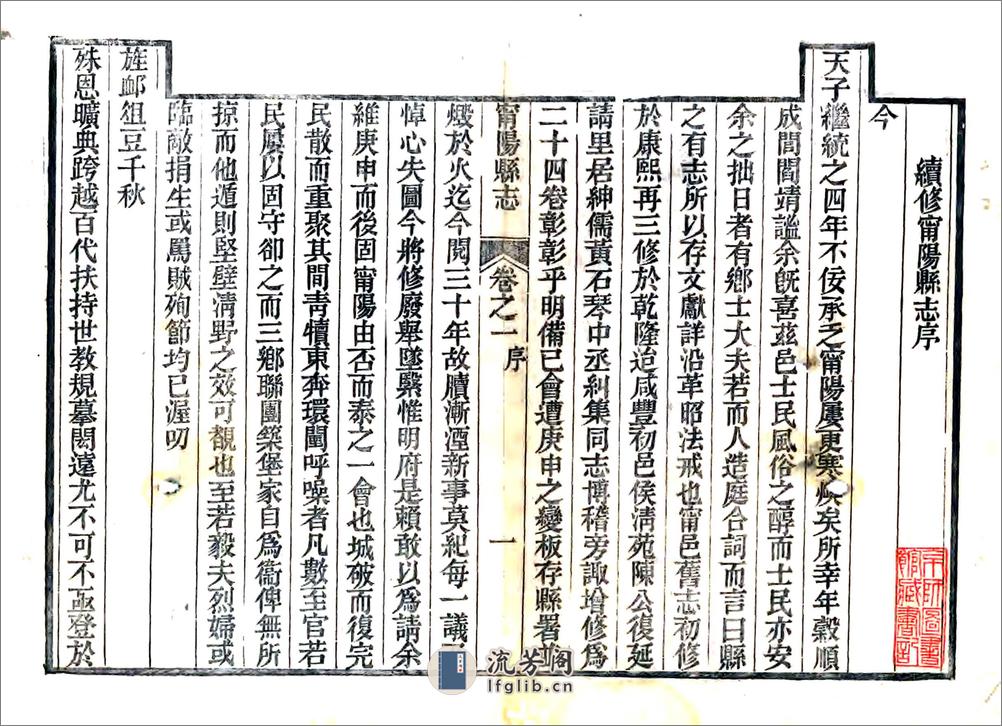 續修甯陽縣志序
今
天子繼統之四年不佞承乏甯陽屢更寒燠矣所幸年穀順
成閭閻靖謐余旣喜茲邑士民風俗之醇而士民亦安
余之拙日者有鄉士大夫若而人造庭合詞而言曰縣
之有志所以存文獻詳沿革昭法戒也甯邑舊志初修
於康熙再三修於乾隆迨咸豐初邑侯清苑陳公復延
請里居紳儒黃石琴中丞糾集同志博稽旁諏增修爲
二十四卷彰彰乎明備已會遭庚申之變板存縣署並
甯陽縣志
卷之一
序
一
燬於火迄今閱三十年故牘漸湮新事莫紀每一議及
悼心失圖今將修廢舉墜繄惟明府是賴敢以爲請余
維庚申而後固甯陽由否而泰之一會也城破而復完
民散而重聚其間青犢東奔環闉呼噪者凡數至官若
民屢以固守卻之而三鄉聯團築堡家自爲衞俾無所
掠而他遁則堅壁清野之效可覩也至若毅夫烈婦或
臨敵捐生或罵賊殉節均已渥叨
旌卹俎豆千秋
殊恩曠典跨越百代扶持世教規摹閎遠尤不可不亟登於
京師圖書館藏書記
流芳阁
lfglib.cn